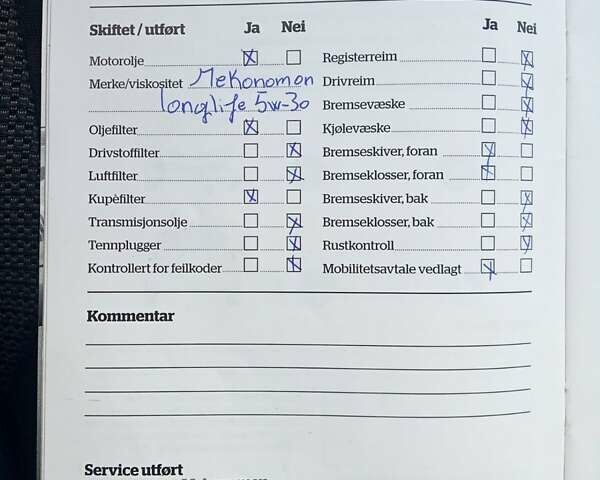 Skiftet / utført Ja Nei
Motorolje
Merke/viskositet Mekonomen
longlife 5w-30
Oljefilter
Drivstoffilter
Luftfilter
Kupèfilter
Transmisjonsolje
Tennplugger
Kontrollert for feilkoder
Ja Nei
Registerreim
Drivreim
Bremsevæske
Kjølevæske
Bremseskiver, foran
Bremseklosser, foran
Bremseskiver, bak
Bremseklosser, bak
Rustkontroll
Mobilitetsavtale vedlagt
Kommentar
Service utført